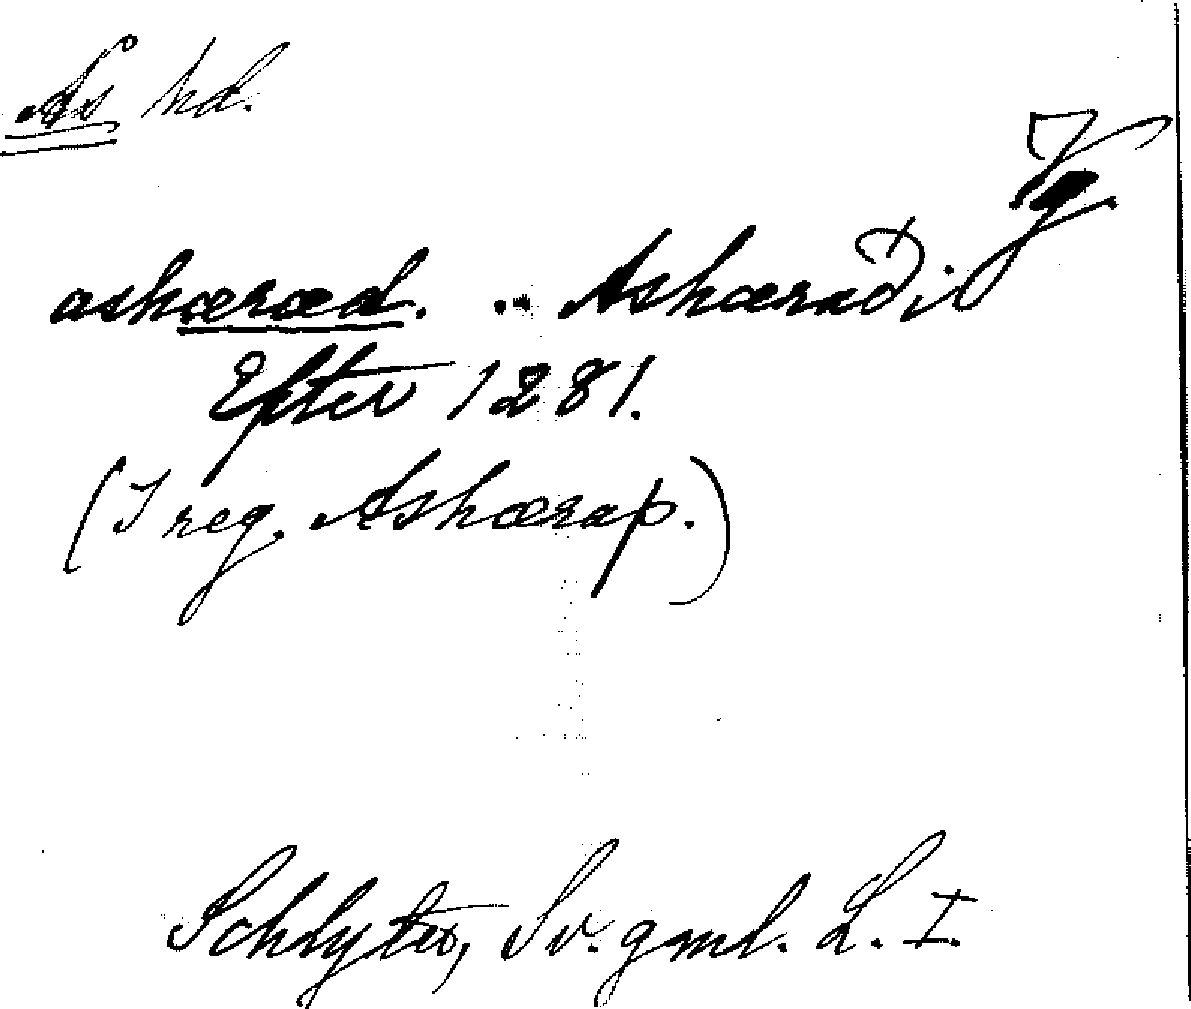 Ås hd.
Vg.
ashæræd. .. Ashæraði
Efter 1281.
(I reg. Ashærap.)
Schlyter, Sv. gml. L. I.